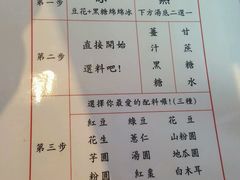 第一步
豆花+黑糖綿綿冰
下方湯底二選一
第二步
直接開始
選料吧!
薑汁黑糖
甘蔗糖水
第三步
選擇你最愛的配料喔!(三種)
紅豆 綠豆 花豆
花生 薏仁 山粉圓
芋圓 湯圓 地瓜圓
粉圓 紅棗 白木耳